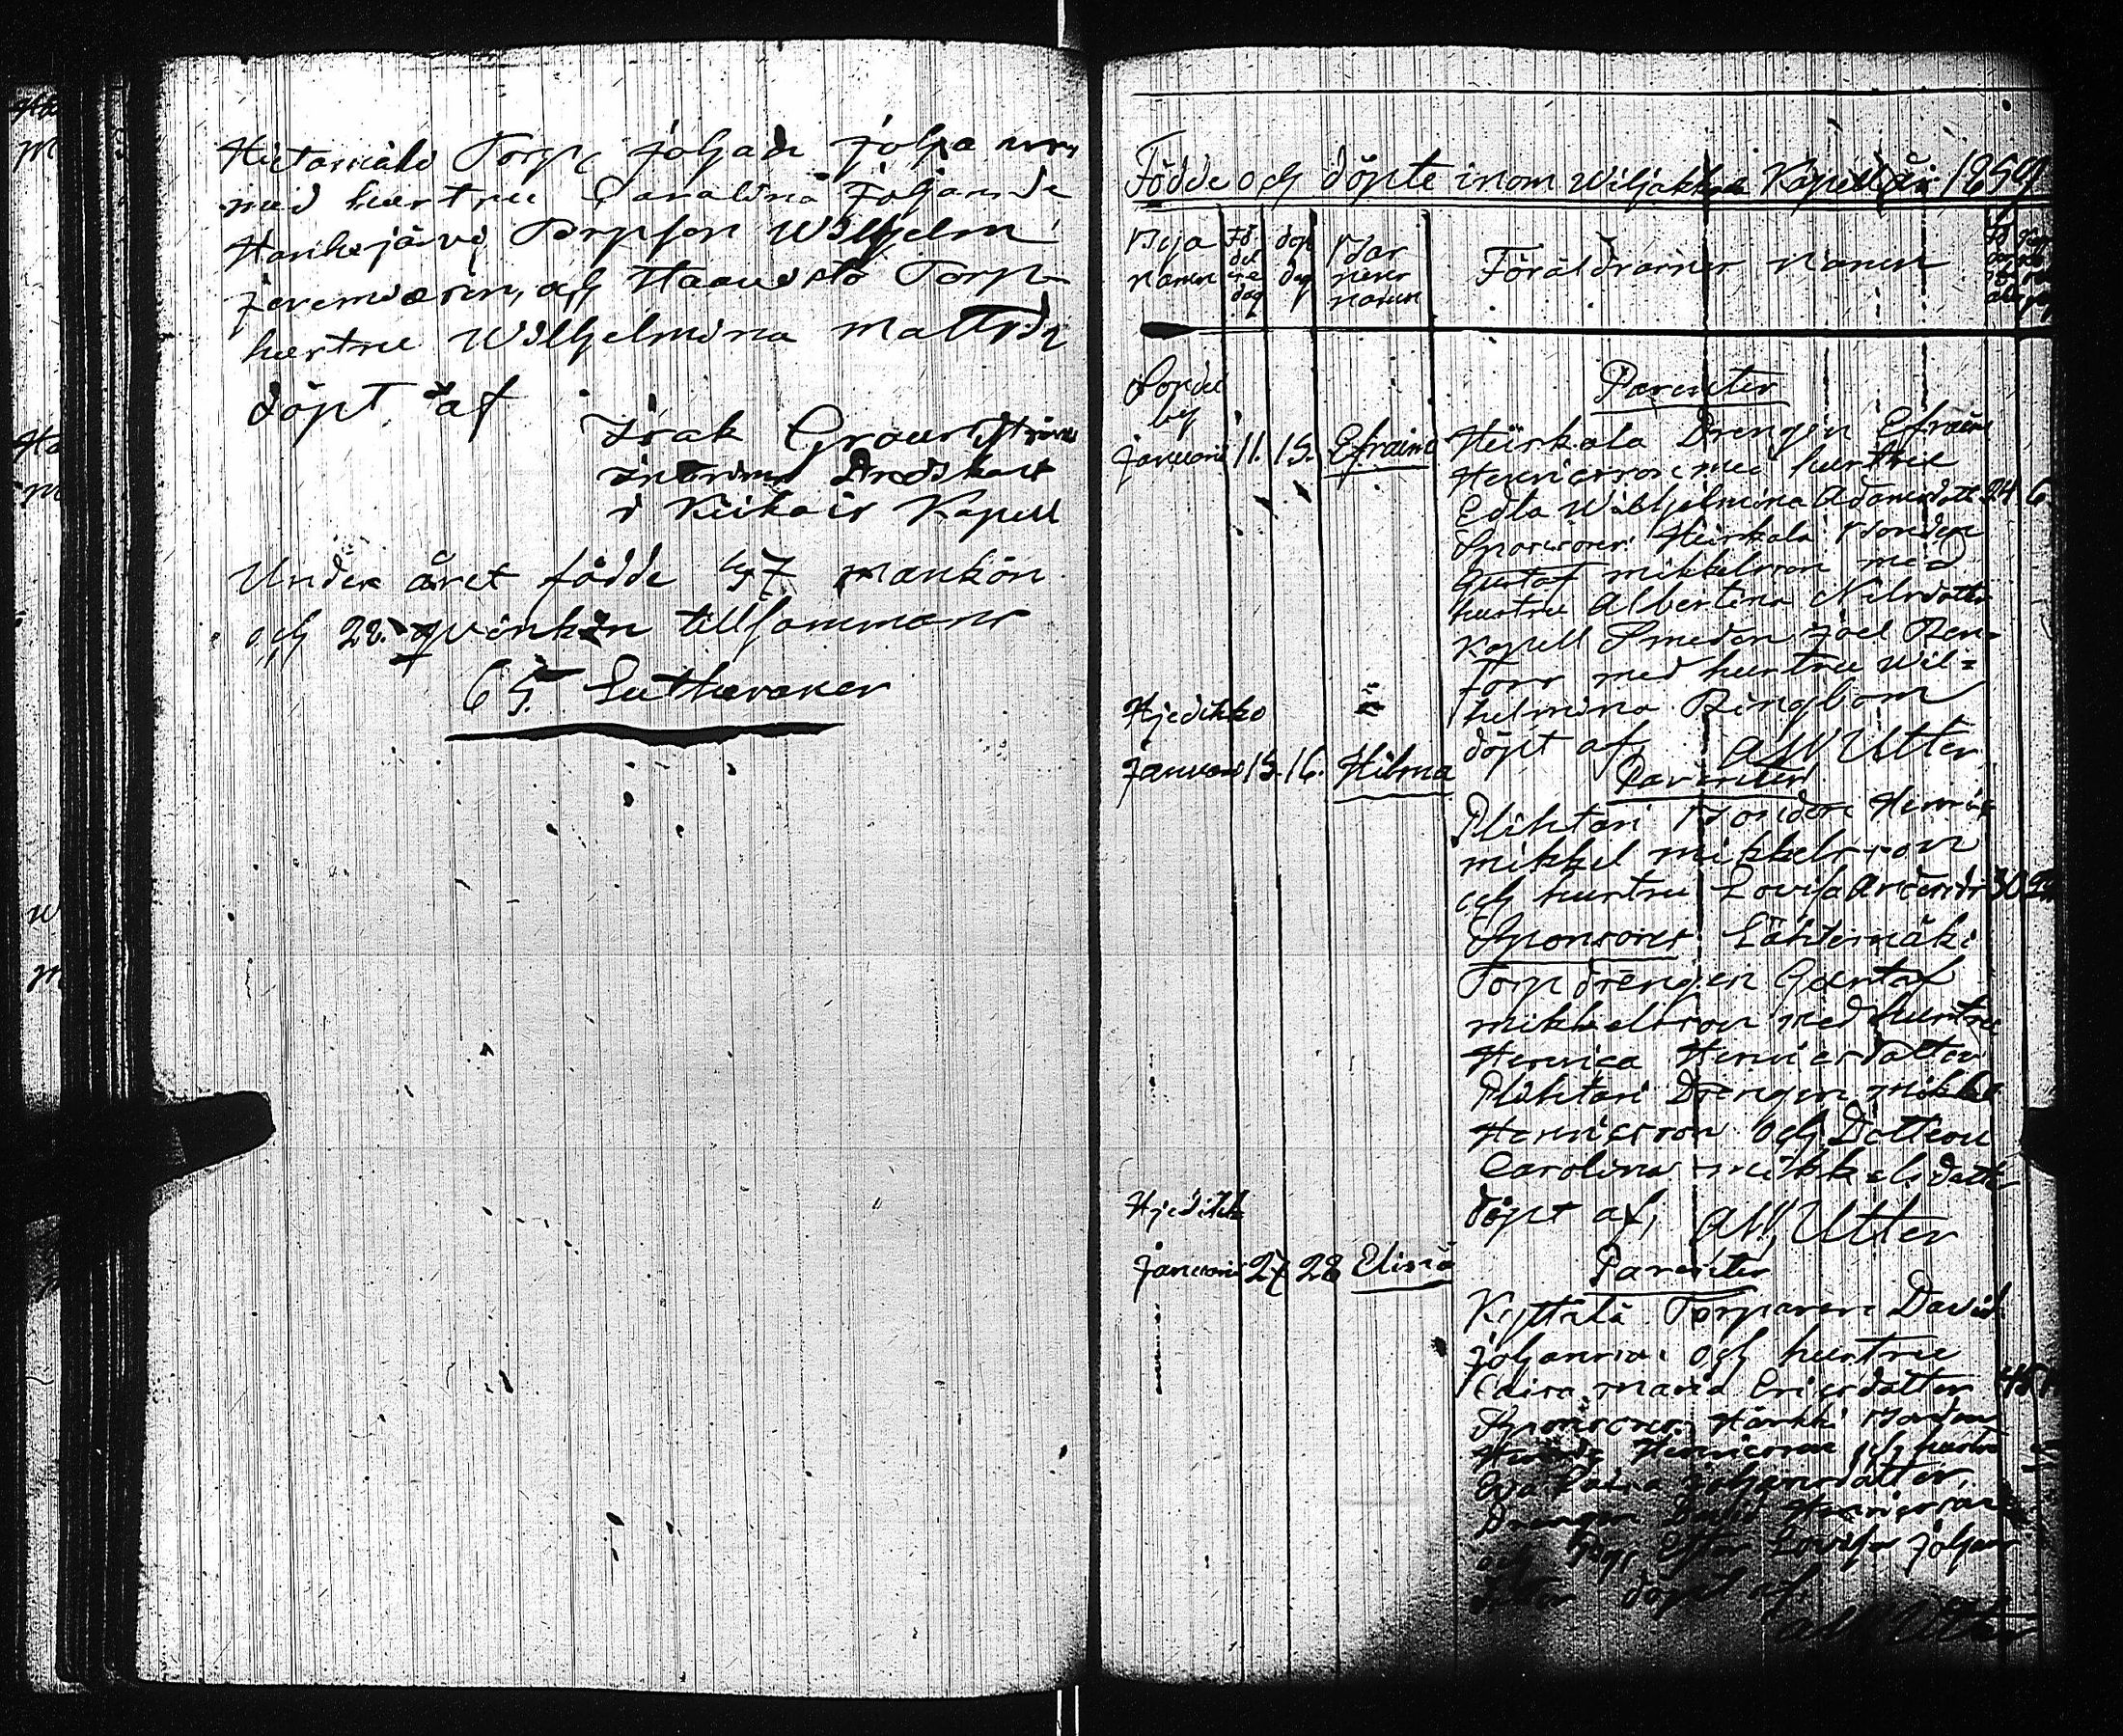 Torp, Johan
med hustru Carolina Johansdr
Hanhijärvi Torpson Wilhelm
Jeremiasson, och Haavisto Torp
hustru Wilhelmina Mattsdr
döpt af
Isak Grönström
Predikant
i Keikois Kapell
Under året födde 37 mankön
och 28 qvinkön tillsammans
65 Lutheraner
Födde och döpte inom Wiljakkala Kapell år 1859
Bya namn
Födelse dag
dop dag
Barnens namn
Föräldrarnes namn
by
Parenter
Januarii 11. 15. Efraim
Heiskala Drengen Efraim
Henricsson med hustru
Edla Wilhelmina Adamsdotter 24 6
Sponsorer Heiskala Bonden
Gustaf Mikkelsson med
hustru Albertina Nilsdotter
Kapell Smeden Joel
med hustru Wil=
helmina Ringbom
döpt af, Utter
Hjedikko
Januarii 15. 16. Hilma
Parenter
Plihtari Bonden Henric
Mikkel Mikkelsson
och hustru Lovisa Andersdr 30
Sponsorer Lähtemäki
Torpdrengen Gustaf
Mikkelsson med hustru
Henrica Henricsdotter
Plihtari Drengen Mikkel
Henricsson och Dottern
Carolina Mikkelsdotter
döpt af, Utter
Januarii 27 28 Elina
Parenter
Kyttälä Torparen David
Johansson och hustru
Caisa Maria Ericsdotter 45
Sponsorer Härkki Bonden
Henricsson och hustru
Eva Caisa Johansdotter
Drengen David Henricsson
och Lovisa Johans
dotter döpt af
Utter